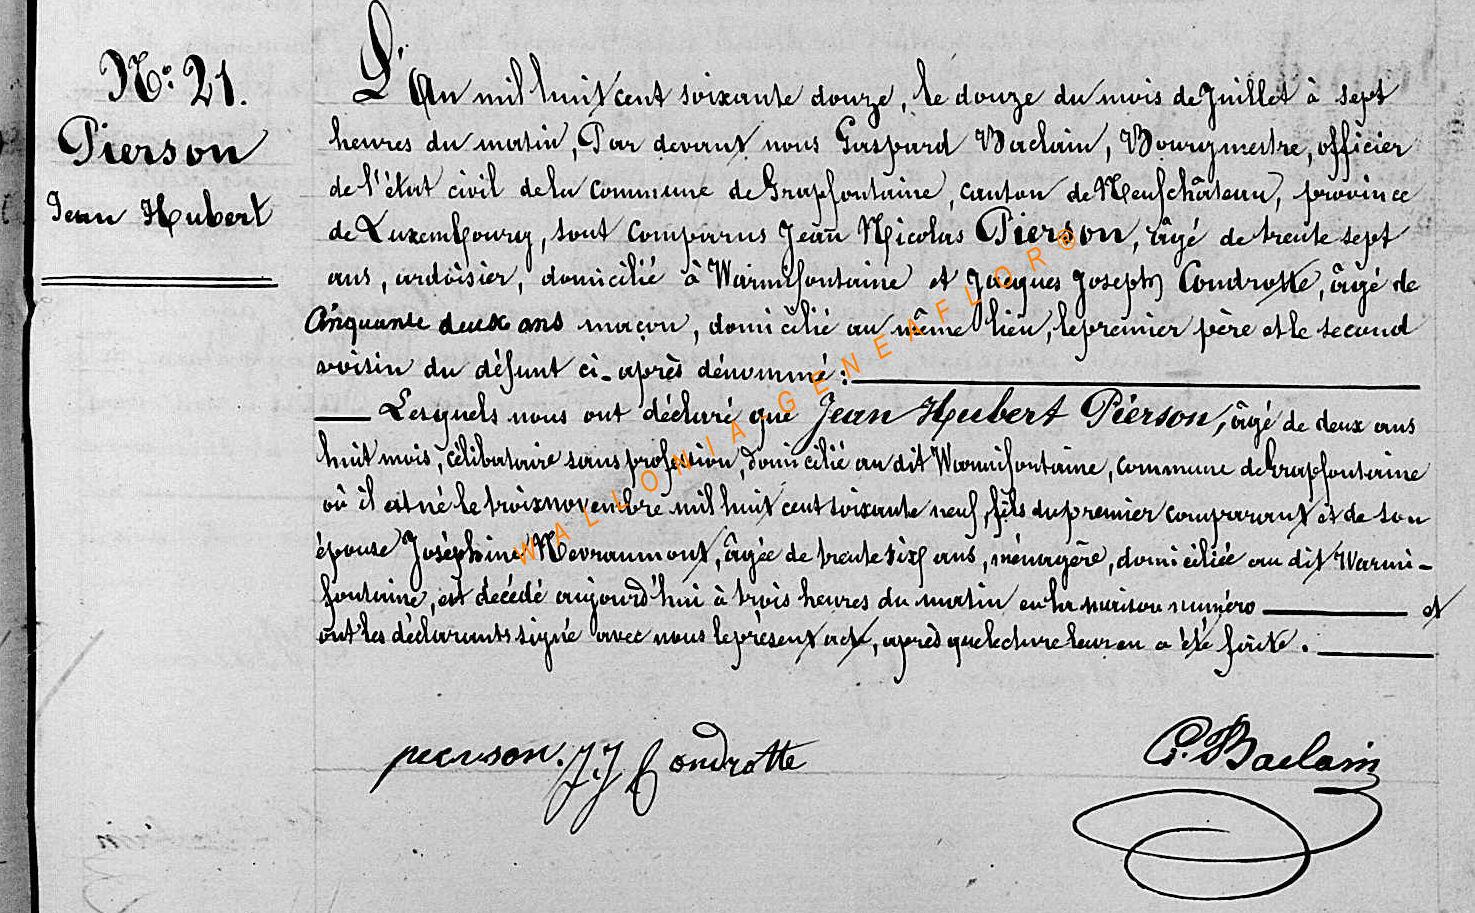 N° 21.
Pierson
Jean Hubert
L'An mil huit cent soixante douze, le douze du mois de Juillet à sept
heures du matin, Par devant nous Gaspard Baclain, Bourgmestre, officier
de l'état civil de la commune de Grapfontaine, canton de Neufchâteau, province
de Luxembourg, sont comparus Jean Nicolas Pierson, âgé de trente sept
ans, ardoisier, domicilié à Warmifontaine et Jacques Joseph Condrotte, âgé de
Cinquante deux ans maçon, domicilié au même lieu, le premier père et le second
voisin du défunt ci-après dénommé :
Lesquels nous ont déclaré que Jean Hubert Pierson, âgé de deux ans
huit mois, célibataire sans profession, domicilié au dit Warmifontaine, commune de Grapfontaine
où il est né le troix novembre mil huit cent soixante neuf, fils du premier comparant et de son
épouse Joséphine Nevraumont, âgée de trente six ans, ménagère, domiciliée au dit Warmi-
fontaine, est décédé aujourd'hui à trois heures du matin en la maison numéro et
ont les déclarants signé avec nous le présent acte, après que lecture leur en a été faite.
pierson. J J Condrotte
G. Baclain
WALLONIA-GENEAFLOR®